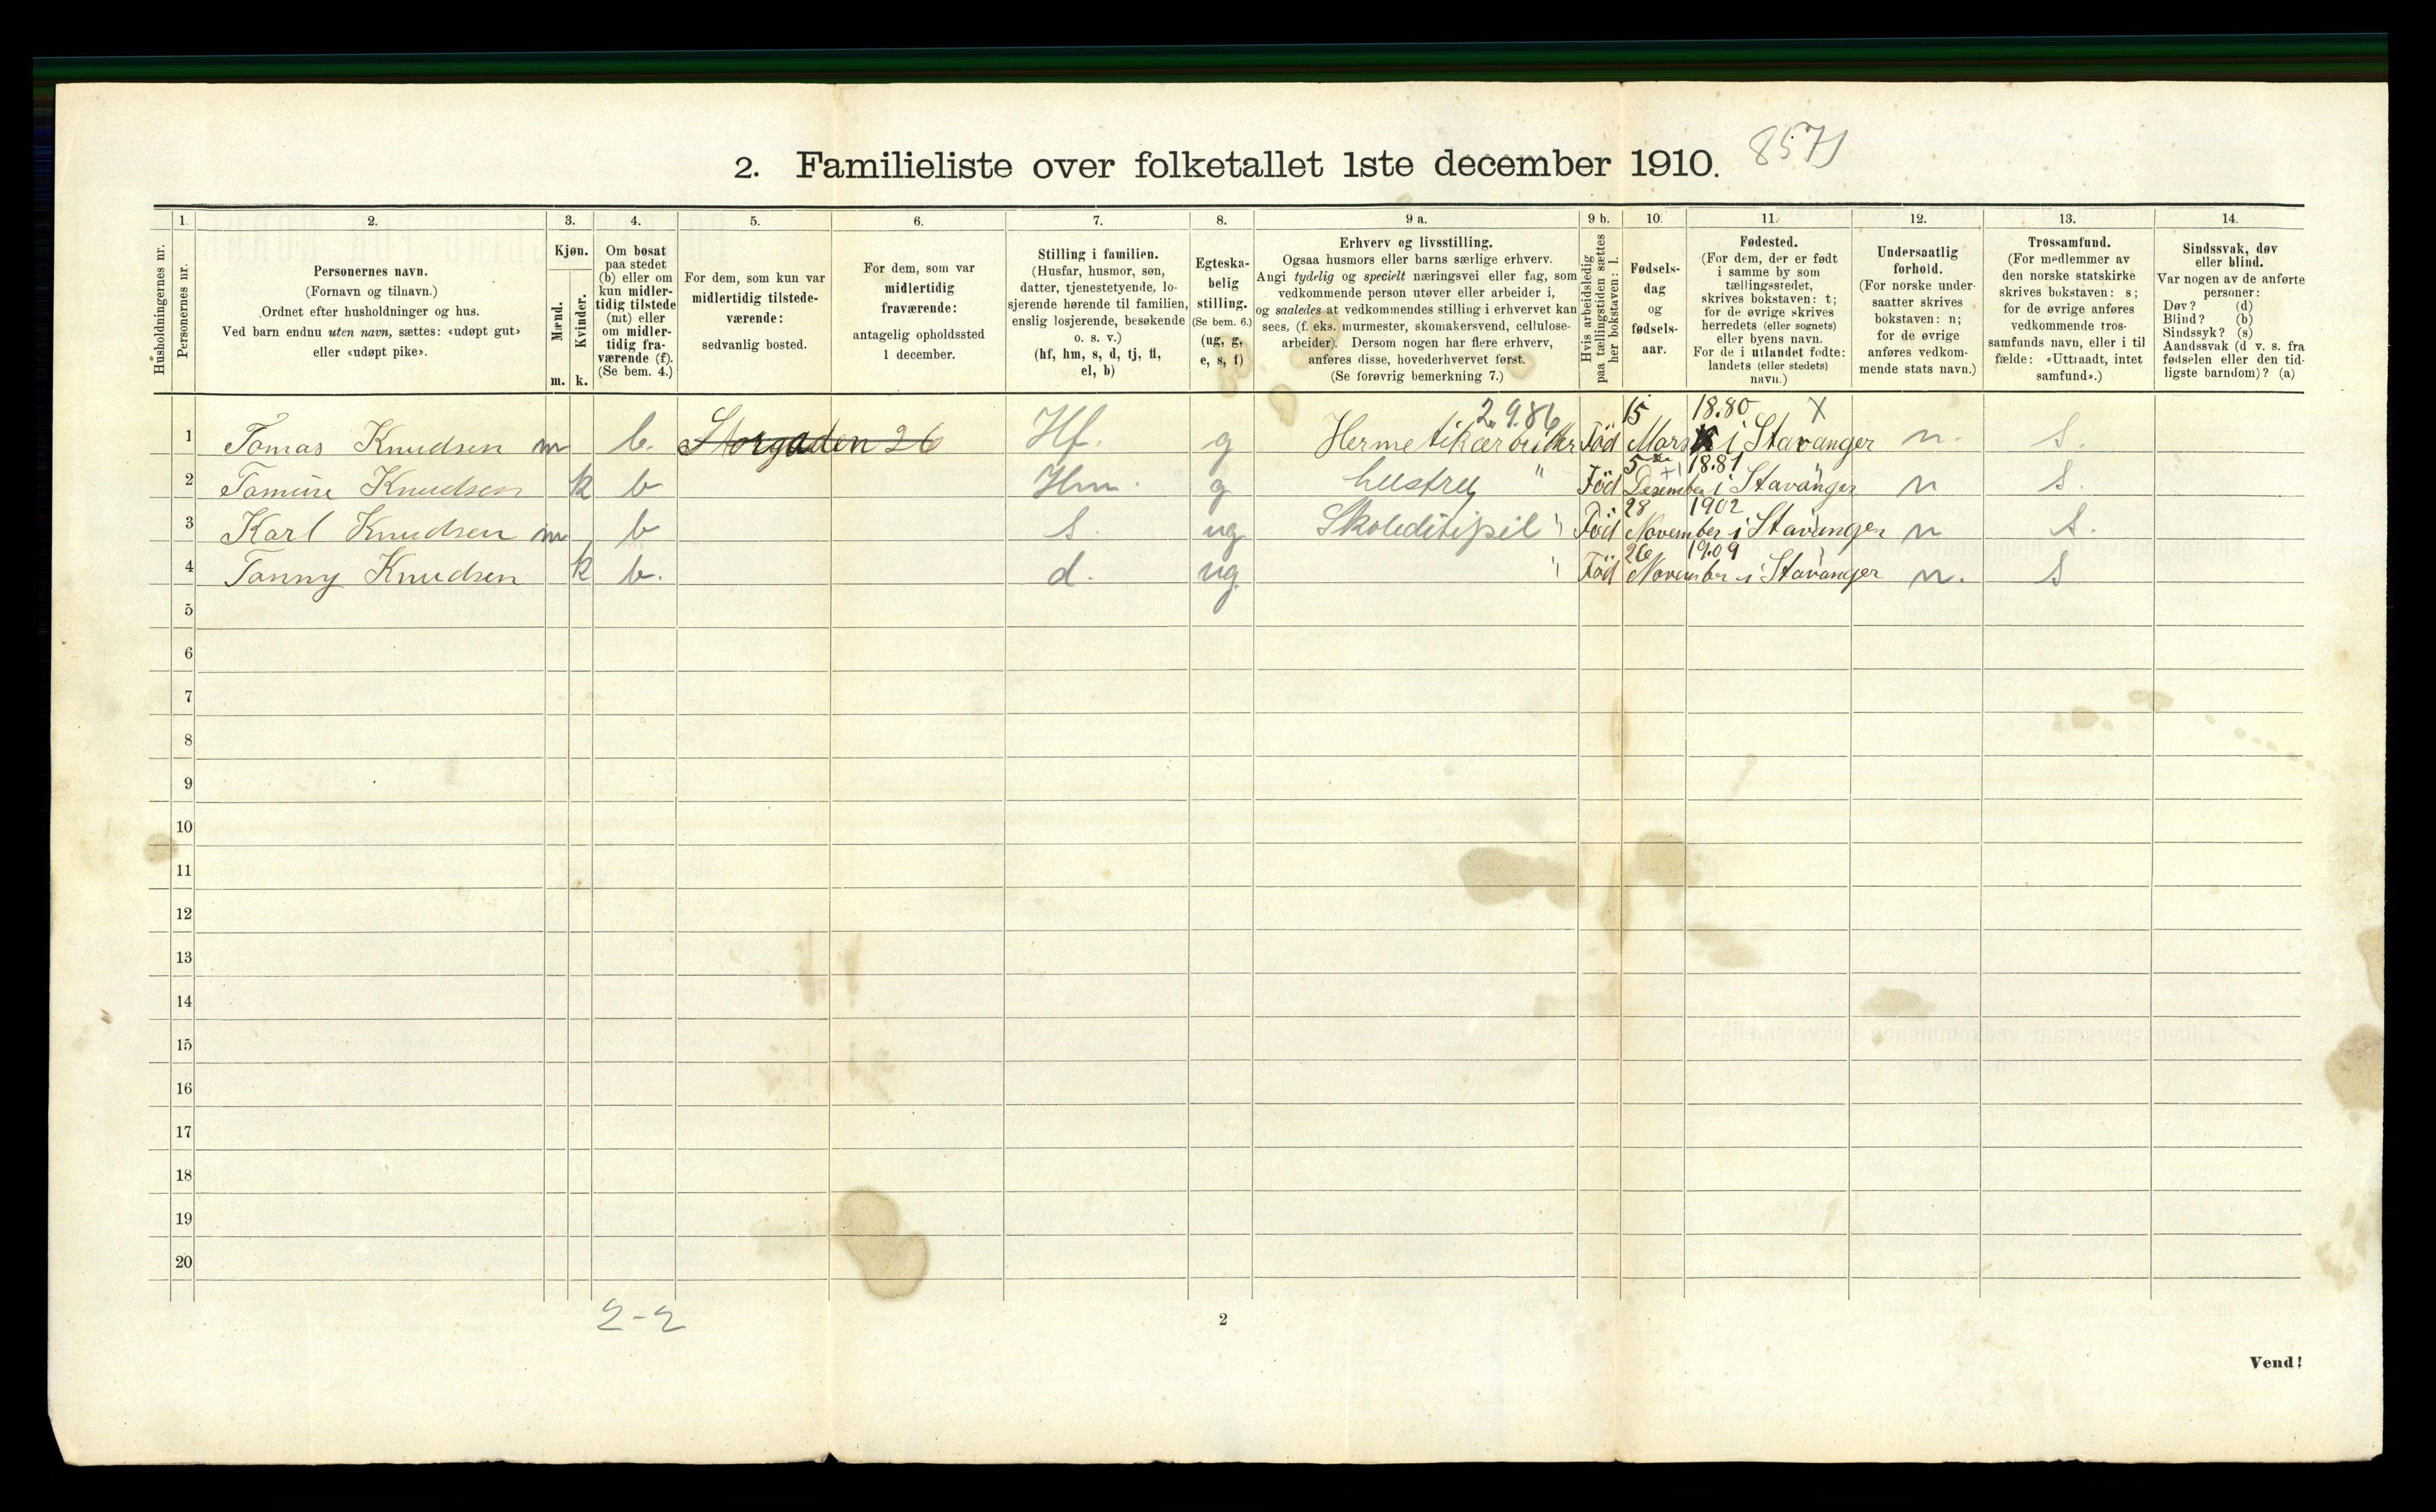 2. Familieliste over folketallet 1ste december 1910. 8571
1. 2. 3. 4. 5. 6. 7. 8. 9 a. 9 b. 10. 11. 12. 13. 14.
Husholdningernes nr.
Personernes nr.
Personernes navn.
(Fornavn og tilnavn.)
Ordnet efter husholdninger og hus.
Ved barn endnu uten navn, sættes: «udøpt gut»
eller «udøpt pike».
Kjøn.
Mænd.
Kvinder.
m. k.
Om bosat
paa stedet
(b) eller om
kun midler-
tidig tilstede
(mt) eller
om midler-
tidig fra-
værende (f).
(Se bem. 4.)
For dem, som kun var
midlertidig tilstede-
værende:
sedvanlig bosted.
For dem, som var
midlertidig
fraværende:
antagelig opholdssted
1 december.
Stilling i familien.
(Husfar, husmor, søn,
datter, tjenestetyende, lo-
sjerende hørende til familien,
enslig losjerende, besøkende
o. s. v.)
(hf, hm, s, d, tj, fl,
el, b)
Egteska-
belig
stilling.
(Se bem. 6.)
(ug, g,
e, s, f)
Erhverv og livsstilling.
Ogsaa husmors eller barns særlige erhverv.
Angi tydelig og specielt næringsvei eller fag, som
vedkommende person utøver eller arbeider i,
og saaledes at vedkommendes stilling i erhvervet kan
sees, (f. eks. murmester, skomakersvend, cellulose-
arbeider). Dersom nogen har flere erhverv,
anføres disse, hovederhvervet først.
(Se forøvrig bemerkning 7.)
Hvis arbeidsledig
paa tællingstiden sættes
her bokstaven: l.
Fødsels-
dag
og
fødsels-
aar.
Fødested.
(For dem, der er født
i samme by som
tællingsstedet,
skrives bokstaven: t;
for de øvrige skrives
herredets (eller sognets)
eller byens navn.
For de i utlandet fødte:
landets (eller stedets)
navn.)
Undersaatlig
forhold.
(For norske under-
saatter skrives
bokstaven: n;
for de øvrige
anføres vedkom-
mende stats navn.)
Trossamfund.
(For medlemmer av
den norske statskirke
skrives bokstaven: s;
for de øvrige anføres
vedkommende tros-
samfunds navn, eller i til-
fælde: «Uttraadt, intet
samfund».)
Sindssvak, døv
eller blind.
Var nogen av de anførte
personer:
Døv? (d)
Blind? (b)
Sindssyk? (s)
Aandssvak (d v. s. fra
fødselen eller den tid-
ligste barndom)? (a)
2.9.86 15 18.80 X
1 Tomas Knudsen m b. Storgaden 26 Hf. g Født Mars i Stavanger n. s.
5 18.81
2 Knudsen k b Hm. g hustru " Född Desember i Stavanger n s.
28 1902
3 Karl Knudsen m b s. ug " Född November i Stavanger n s.
26 19.09
4 Tanny Knudsen k b. d. ug " Född November i Stavanger n. s
5
6
7
8
9
10
11
12
13
14
15
16
17
18
19
20
2-2
2
Vend!